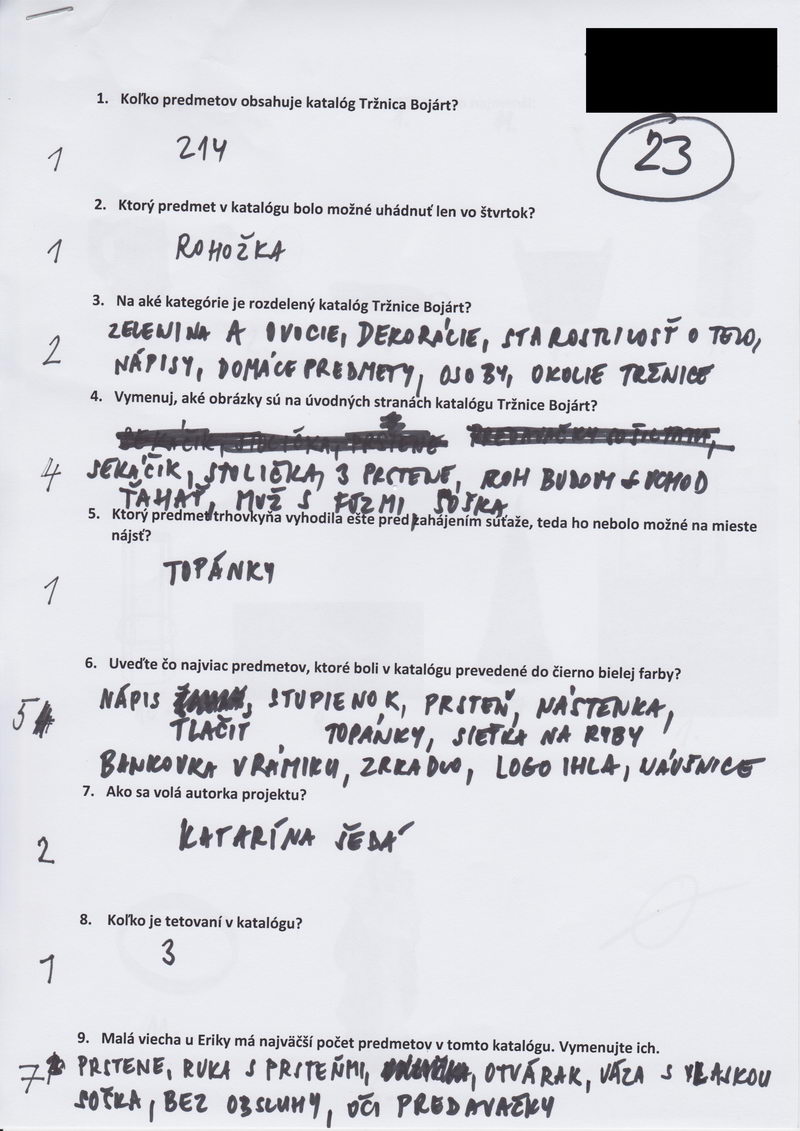 1. Koľko predmetov obsahuje katalóg Tržnica Bojárt?
1 214
23
2. Ktorý predmet v katalógu bolo možné uhádnuť len vo štvrtok?
1 ROHOŽKA
3. Na aké kategórie je rozdelený katalóg Tržnice Bojárt?
ZELENINA A OVOCIE, DEKORÁCIE, STAROSTLIVOSŤ O TELO,
2 NÁPISY, DOMÁCE PREDMETY, OSOBY, OKOLIE TRŽNICE
4. Vymenuj, aké obrázky sú na úvodných stranách katalógu Tržnice Bojárt?
4 SEKÁČIK, STOLIČKA, 3 PRSTENE, ROH BUDOVY VCHOD
ŤAHAŤ, MUŽ S FÚZMI SOŠKA
5. Ktorý predmet trhovkyňa vyhodila ešte pred zahájením súťaže, teda ho nebolo možné na mieste
nájsť?
1 TOPÁNKY
6. Uveďte čo najviac predmetov, ktoré boli v katalógu prevedené do čierno bielej farby?
5 NÁPIS , STUPIENOK, PRSTEŇ, NÁSTENKA,
TLAČIŤ TOPÁNKY, SIEŤKA NA RYBY
BANKOVKA V RÁMIKU, ZRKADLO, LOGO IHLA, NÁUŠNICE
7. Ako sa volá autorka projektu?
2 KATARÍNA ŠEDÁ
8. Koľko je tetovaní v katalógu?
1 3
9. Malá viecha u Eriky má najväčší počet predmetov v tomto katalógu. Vymenujte ich.
7 PRSTENE, RUKA S PRSTEŇMI, OTVÁRAK, VÁZA S VLASKOU
SOŠKA, BEZ OBSLUHY, OČI PREDAVAČKY